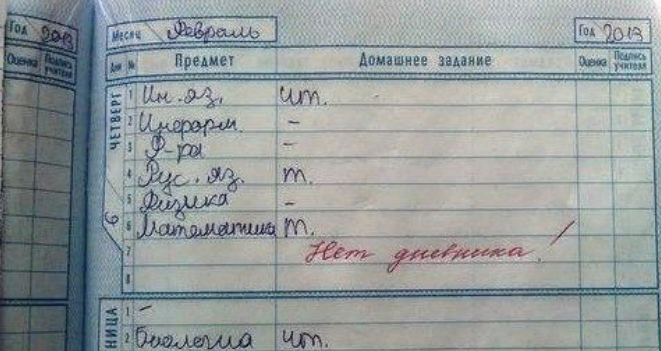 Год 2013
Месяц Февраль Год 2013
Оценка Подпись учителя Дни № Предмет Домашнее задание Оценка Подпись учителя
ЧЕТВЕРГ 6
1 Ин. яз. чт.
2 Информ. -
3 Ф-ра -
4 Рус. яз. т.
5 Физика -
6 Математика т.
7 Нет дневника!
8
НИЦА
1 -
2 Биология чт.